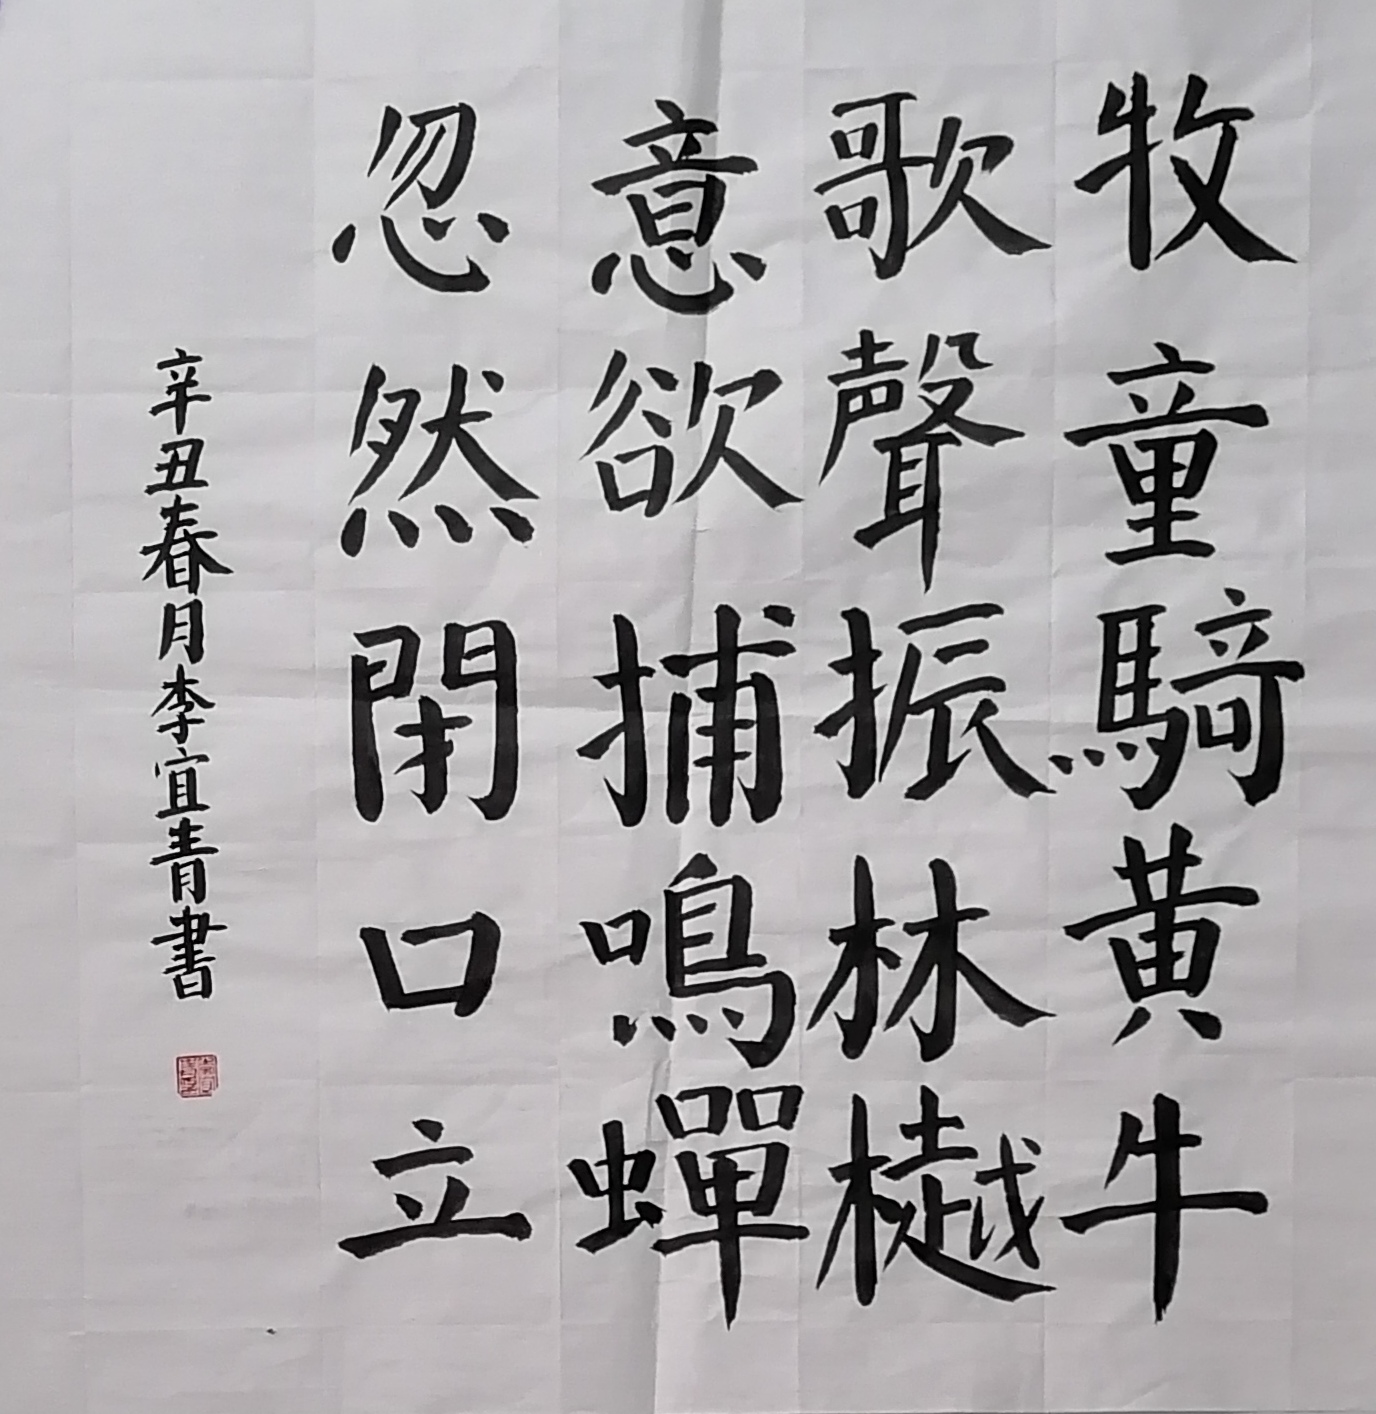 牧童騎黃牛
歌聲振林樾
意欲捕鳴蟬
忽然閉口立
辛丑春月李宜青書